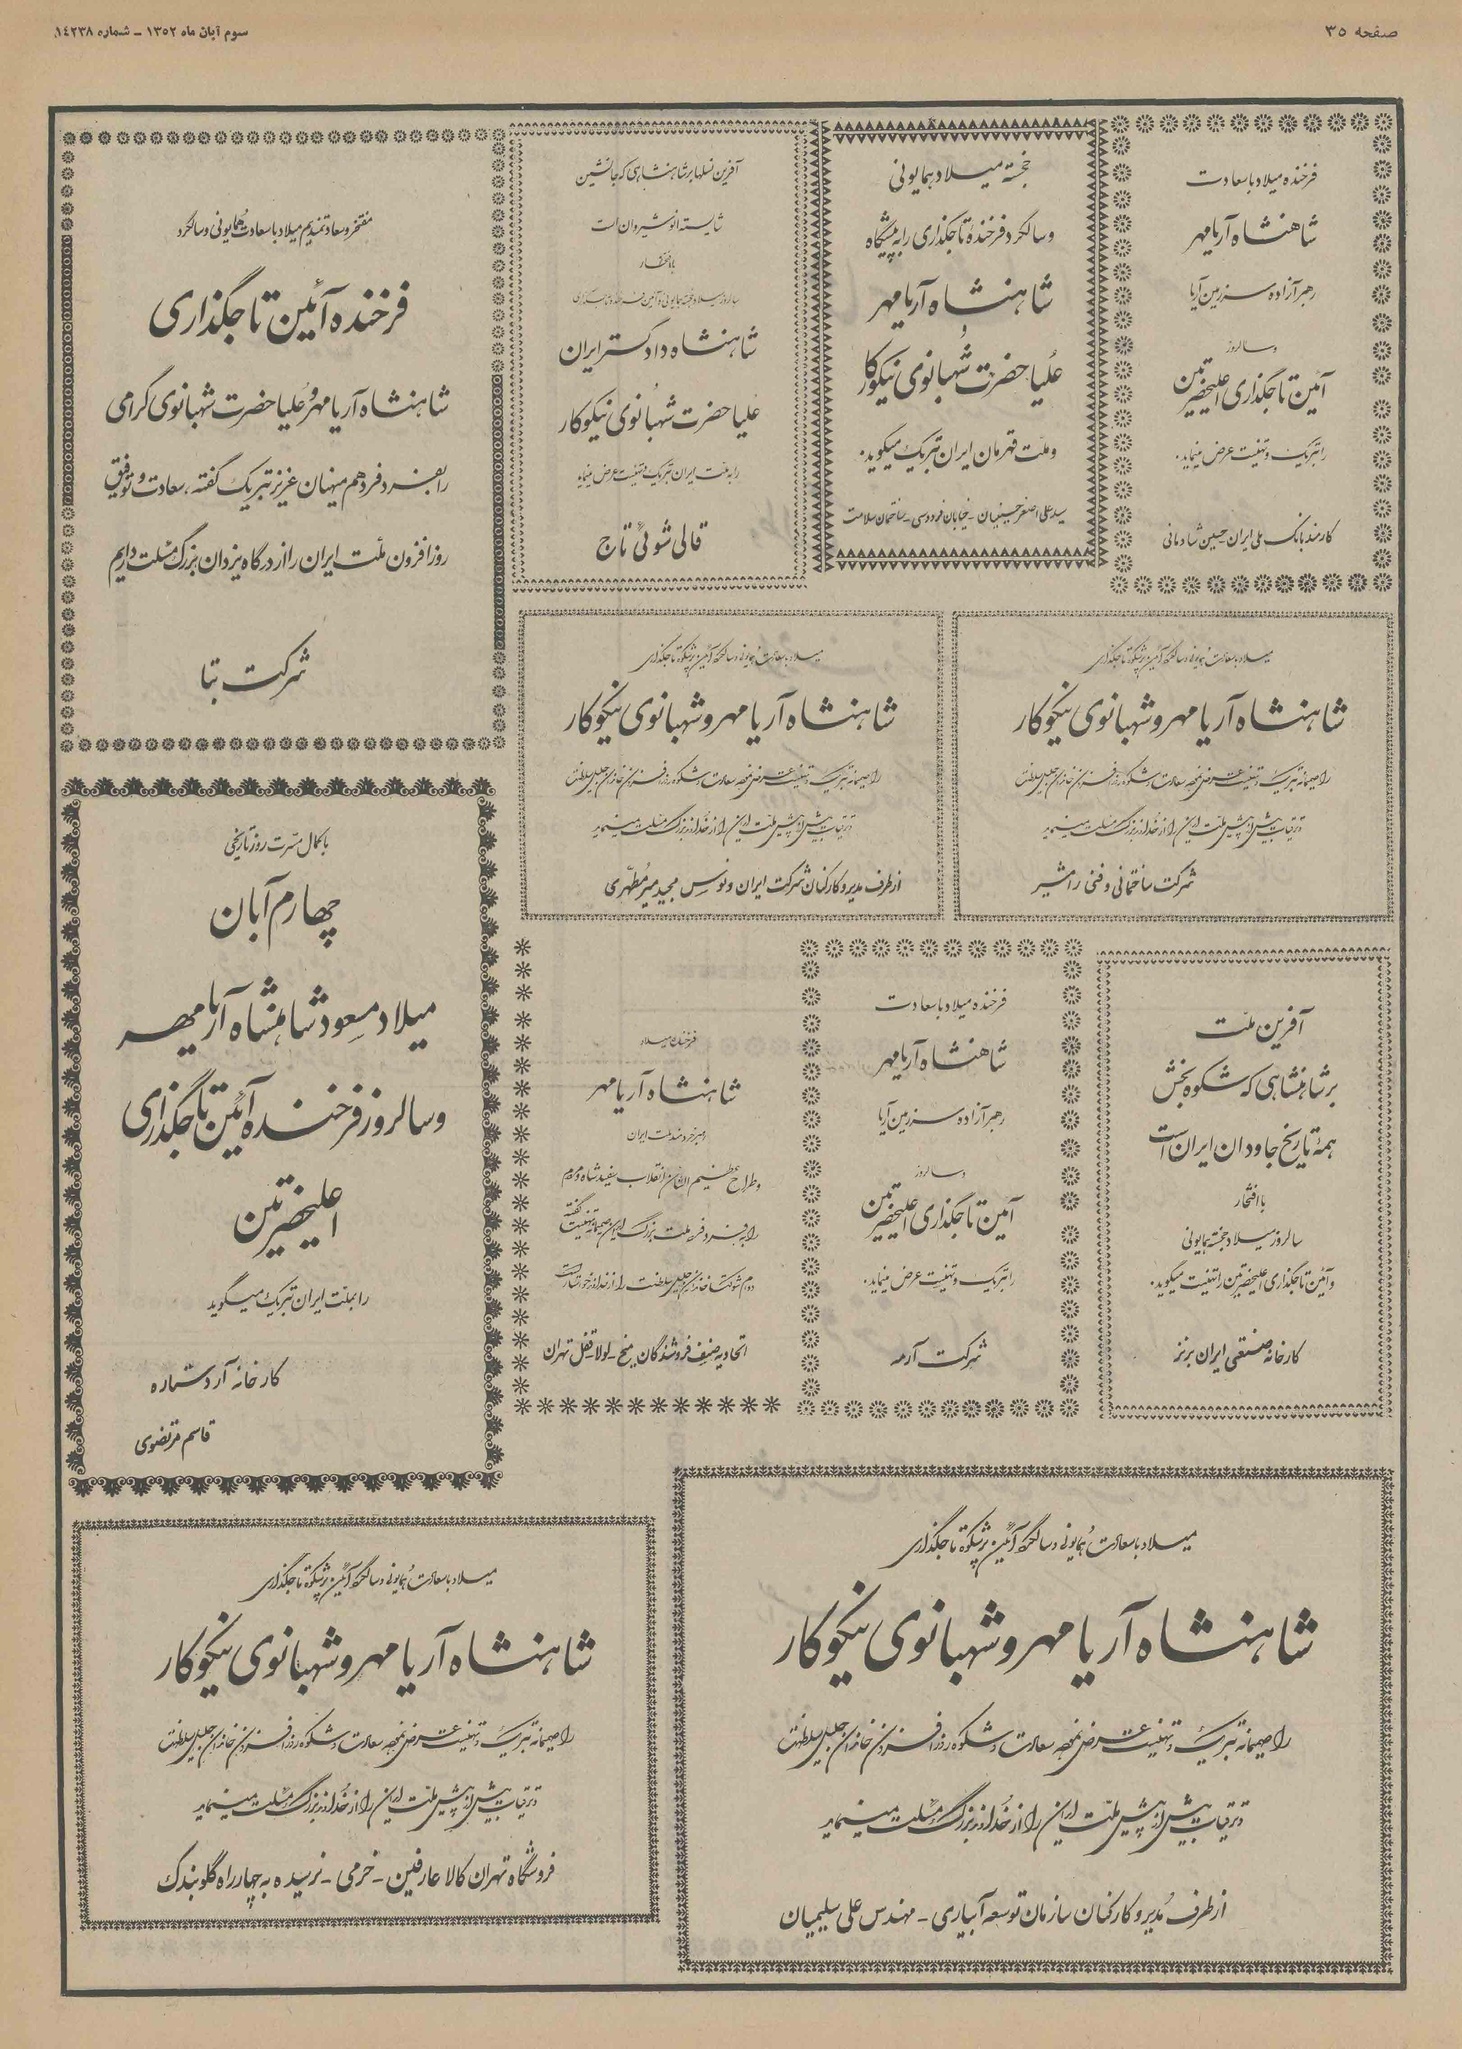 صفحه ۳۵
سوم آبان ماه ۱۳۵۲ - شماره ۱۴۲۳۸
فرخنده میلاد با سعادت
شاهنشاه آریامهر
رهبر آزاده سرزمین آریا
و سالروز
آئین تاجگذاری اعلیحضرتین
را تبریک و تهنیت عرض مینماید.
کارمند بانک ملی ایران حسین شادمانی
خجسته میلاد همایونی
و سالگرد فرخنده تاجگذاری را به پیشگاه
شاهنشاه آریامهر
و
علیا حضرت شهبانوی نیکوکار
و ملت قهرمان ایران تبریک میگوید.
سید علی اصغر حسینیان - خیابان فردوسی - ساختمان سلامت
آفرین نسلها بر شاهنشاهی که جانشین
شایسته انوشیروان است
با افتخار
سالروز میلاد خجسته همایونی و آئین فرخنده تاجگذاری
شاهنشاه دادگستر ایران
علیا حضرت شهبانوی نیکوکار
را به ملت ایران تبریک و تهنیت عرض مینماید
قالی شوئی تاج
مفتخر و سعادتمندیم میلاد با سعادت همایونی و سالگرد
فرخنده آئین تاجگذاری
شاهنشاه آریامهر و علیا حضرت شهبانوی گرامی
را بفرد فرد هم میهنان عزیز تبریک گفته، سعادت و توفیق
روزافزون ملت ایران را از درگاه یزدان بزرگ مسئلت داریم
شرکت بتا
میلاد با سعادت همایونی و سالگرد آئین پرشکوه تاجگذاری
شاهنشاه آریامهر و شهبانوی نیکوکار
را صمیمانه تبریک و تهنیت عرض نموده سعادت و شکوه روزافزون خاندان جلیل سلطنت
و ترقیات بیش از پیش ملت ایران را از خداوند بزرگ مسئلت مینماید
شرکت ساختمانی و فنی رامشیر
میلاد با سعادت همایونی و سالگرد آئین پرشکوه تاجگذاری
شاهنشاه آریامهر و شهبانوی نیکوکار
را صمیمانه تبریک و تهنیت عرض نموده سعادت و شکوه روزافزون خاندان جلیل سلطنت
و ترقیات بیش از پیش ملت ایران را از خداوند بزرگ مسئلت مینماید
از طرف مدیر و کارکنان شرکت ایران ونوس مجید میرمطهری
با کمال مسرت روز تاریخی
چهارم آبان
میلاد مسعود شاهنشاه آریامهر
و سالروز فرخنده آئین تاجگذاری
اعلیحضرتین
را بملت ایران تبریک میگوید
کارخانه آرد ستاره
قاسم مرتضوی
آفرین ملت
بر شاهنشاهی که شکوه بخش
همه تاریخ جاودان ایران است
با افتخار
سالروز میلاد خجسته همایونی
و آئین تاجگذاری اعلیحضرتین را تهنیت میگوید.
کارخانه صنعتی ایران برنز
فرخنده میلاد با سعادت
شاهنشاه آریامهر
رهبر آزاده سرزمین آریا
و سالروز
آئین تاجگذاری اعلیحضرتین
را تبریک و تهنیت عرض مینماید.
شرکت آرمه
فرخنده میلاد
شاهنشاه آریامهر
رهبر خردمند ملت ایران
و طراح عظیم الشأن انقلاب سفید شاه و مردم
را بفرد فرد ملت بزرگ ایران صمیمانه تهنیت گفته
دوام شوکت خاندان جلیل سلطنت را از خداوند خواستار است
اتحادیه صنف فروشندگان میخ - لولا - قفل تهران
میلاد با سعادت همایونی و سالگرد آئین پرشکوه تاجگذاری
شاهنشاه آریامهر و شهبانوی نیکوکار
را صمیمانه تبریک و تهنیت عرض نموده سعادت و شکوه روزافزون خاندان جلیل سلطنت
و ترقیات بیش از پیش ملت ایران را از خداوند بزرگ مسئلت مینماید
از طرف مدیر و کارکنان سازمان توسعه آبیاری - مهندس علی سلیمیان
میلاد با سعادت همایونی و سالگرد آئین پرشکوه تاجگذاری
شاهنشاه آریامهر و شهبانوی نیکوکار
را صمیمانه تبریک و تهنیت عرض نموده سعادت و شکوه روزافزون خاندان جلیل سلطنت
و ترقیات بیش از پیش ملت ایران را از خداوند بزرگ مسئلت مینماید
فروشگاه تهران کالا عارفین - خرمی - نرسیده به چهارراه گلوبندک